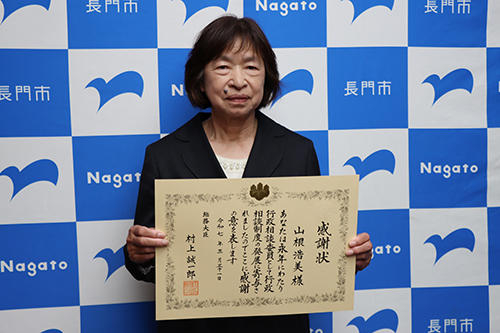 Nagato
長門市
Nagato
長門市
長門市
Nagato
長門市
Nagato
Nagato
長門市
Nagato
長門市
Nagato
感謝状
山根浩美様
あなたは永年にわたり
行政相談委員として行政
相談制度の発展に寄与さ
れましたのでここに感謝
の意を表します
令和七年三月三十一日
総務大臣
村上誠一郎